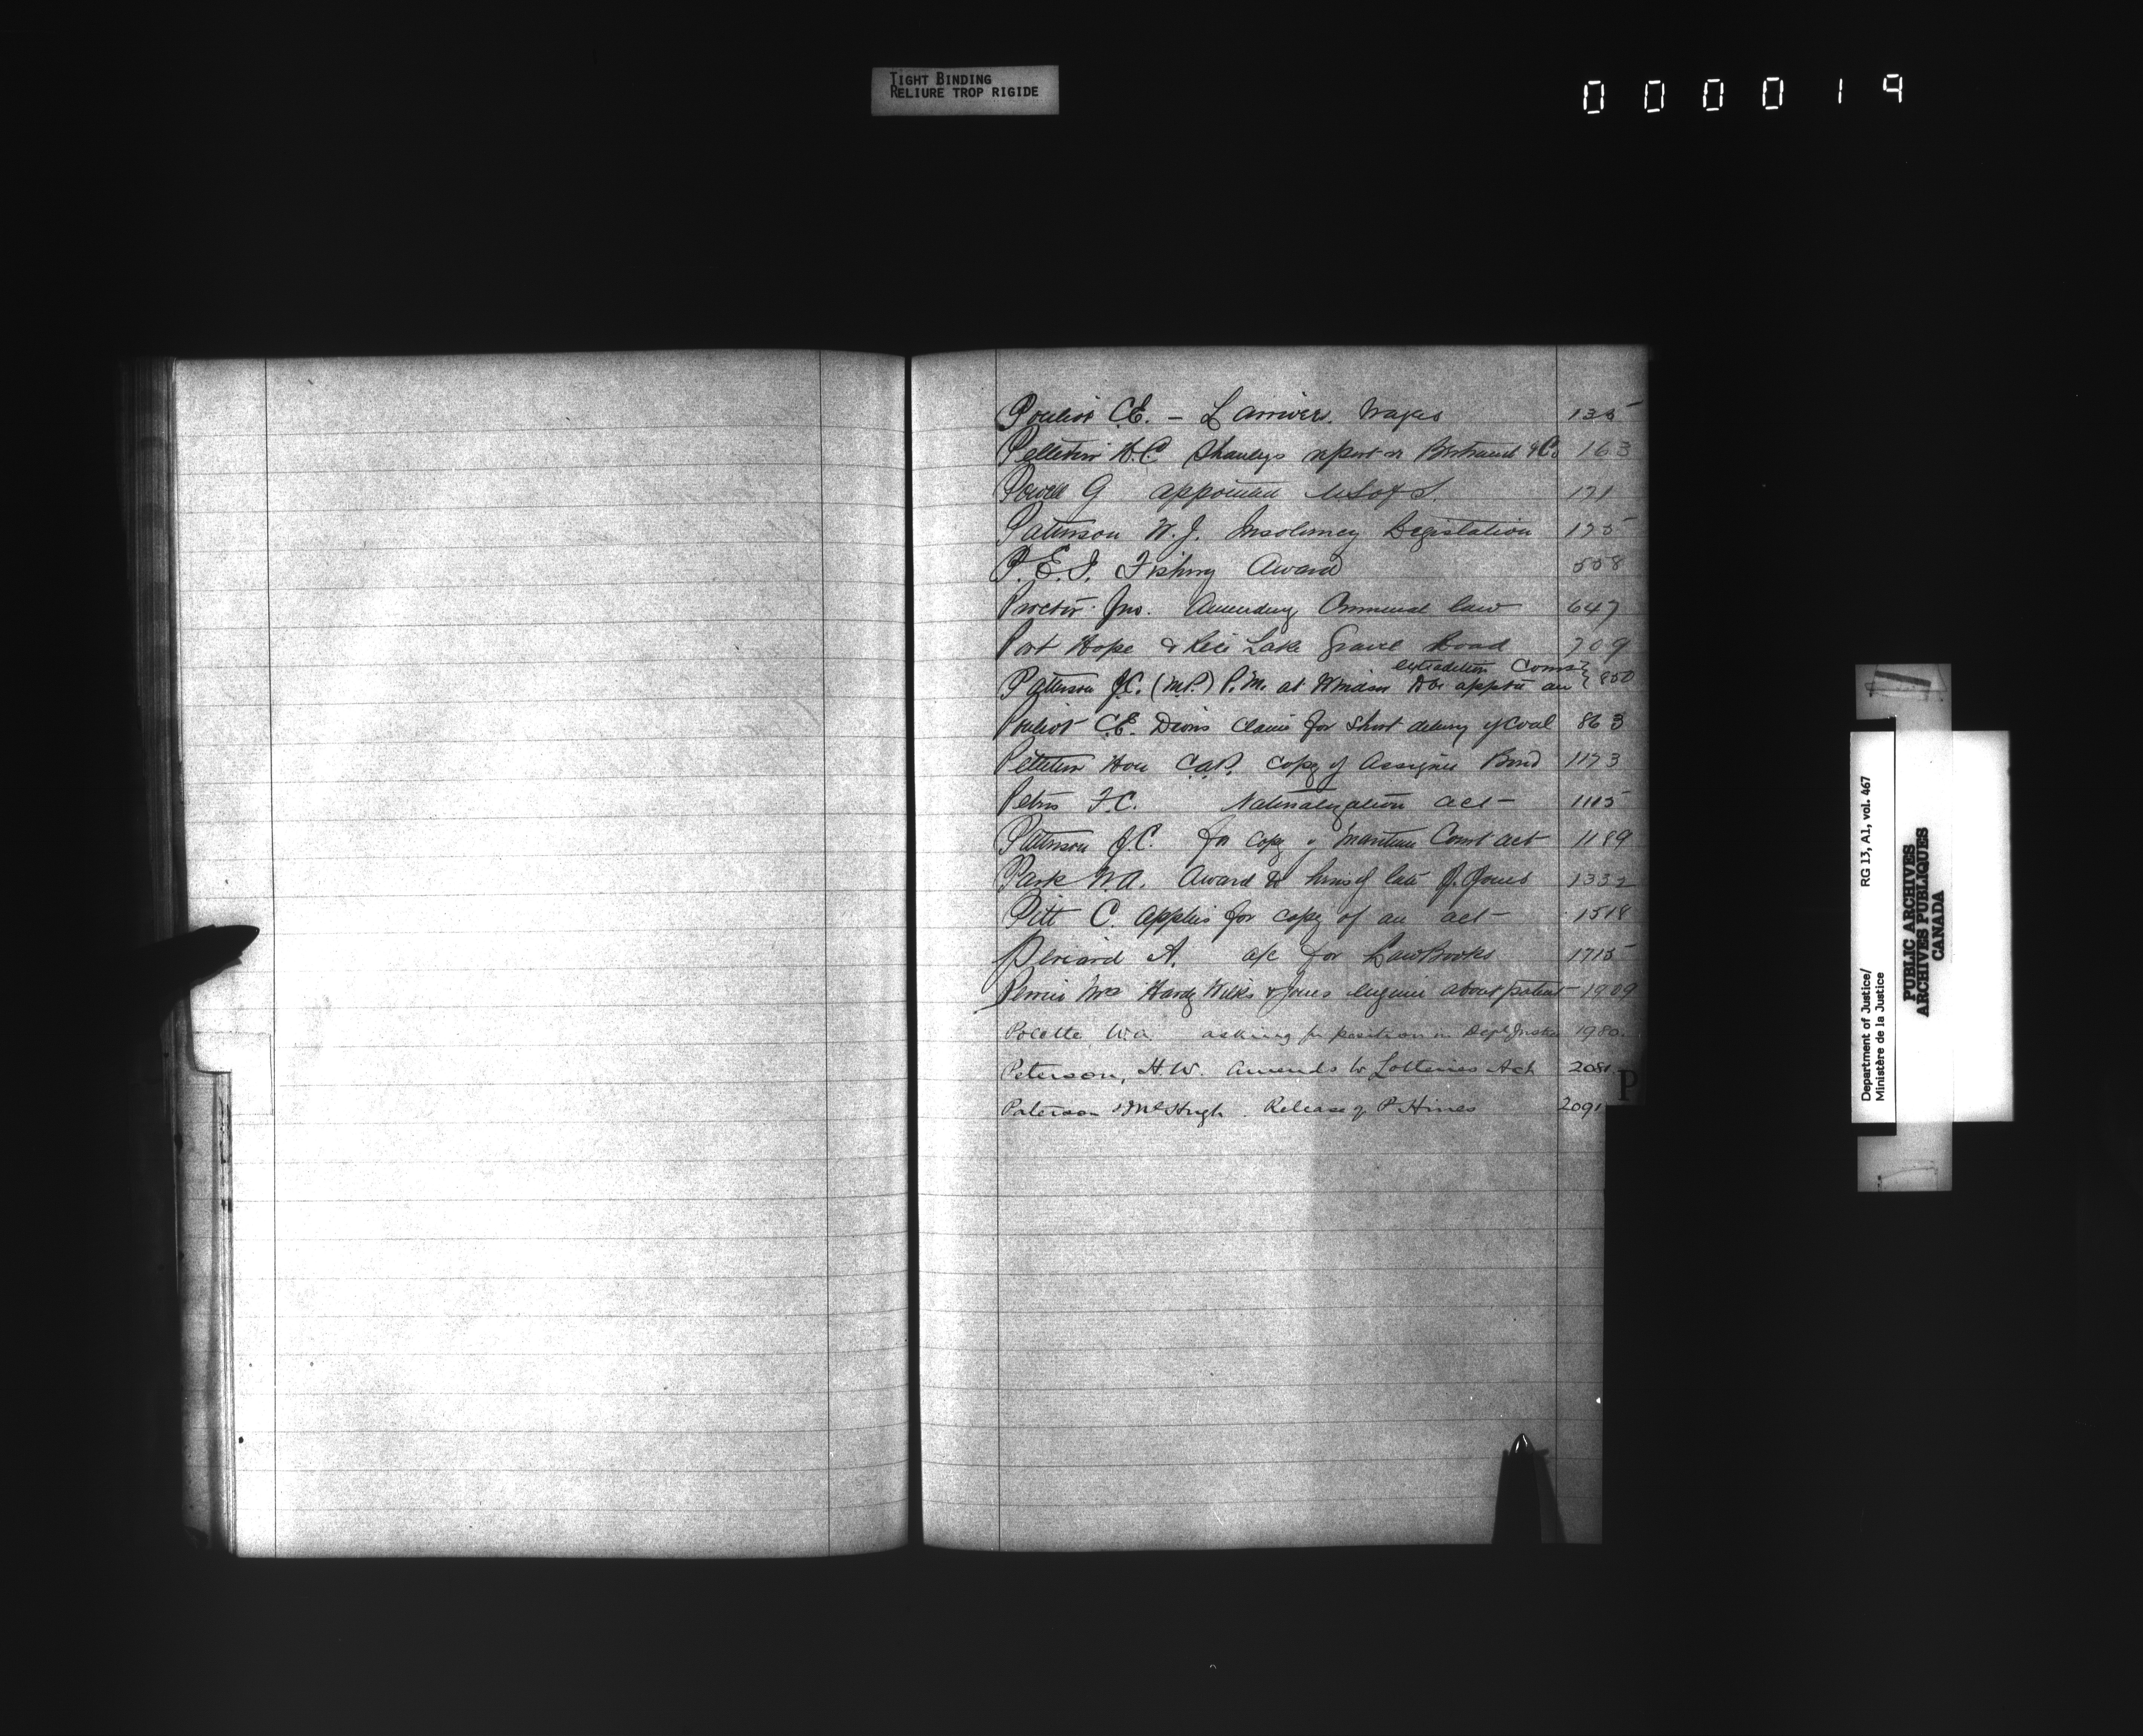 TIGHT BINDING
RELIURE TROP RIGIDE
000019
Pouliot C.E. – Larriver. Wages 135
Pelletier H.C. Shanleys report re Bertrand & Co 163
Powell G appointed U S of S. 171
Patterson W. J. Insolvency Legislation 175
P. E. I. Fishing Award 558
Proctor Jno. Amending Criminal law 647
Port Hope & Rice Lake Gravel Road 709
extradition Comr
Patterson J.C. (M.P.) P.M. at Windsor to be apptd an 850
Pouliot C.E. Dion's claim for short delivy of Coal 863
Pelletier Hon C.A.P. Copy of Assignee Bond 1173
Peters F.C. Naturalization act 1115
Patterson J.C. for copy of Maritime Court act 1189
Park W.A. Award to heirs of late J. Jones 1332
Pitt C. applies for copy of an act 1518
Periard A. a/c for Law Books 1715
Perrin Mrs Hardy Wilks & Jones enquire about patent 1909
Polette W.A. asking for position in Dept Justice 1980.
Peterson, H.W. Amends to Lotteries Act 2081
Paterson & McHugh. Release of P. Hines 2091
P
Department of Justice/ RG 13, A1, vol. 467
Ministère de la Justice
PUBLIC ARCHIVES
ARCHIVES PUBLIQUES
CANADA